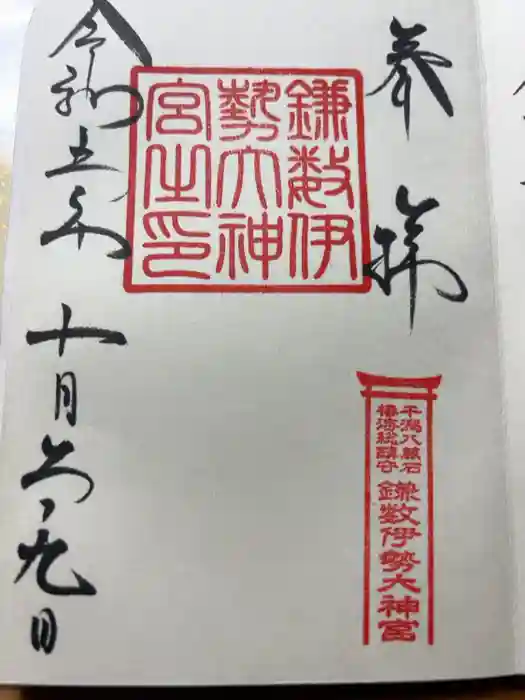 奉拝
鎌数伊
勢大神
宮之印
干潟八萬石
椿海総鎮守
鎌数伊勢大神宮
令和五年十月二十九日